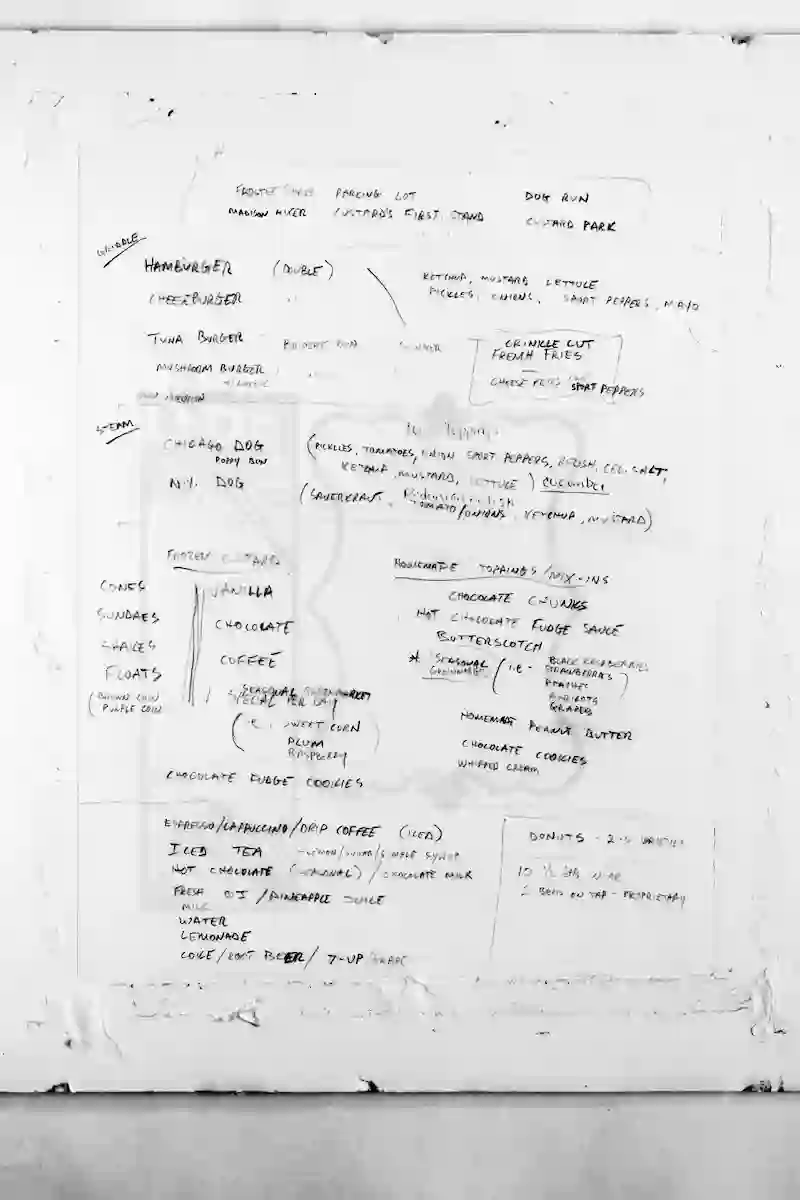 PARKING LOT DOG RUN
MADISON MIXER CUSTARD'S FIRST STAND CUSTARD PARK
GRIDDLE
HAMBURGER (DOUBLE) KETCHUP, MUSTARD LETTUCE
CHEESEBURGER PICKLES, ONIONS, SPORT PEPPERS, MAYO
TUNA BURGER
CRINKLE CUT
FRENCH FRIES
MUSHROOM BURGER
CHEESE FRIES SPORT PEPPERS
STEAM
CHICAGO DOG (PICKLES, TOMATOES, ONION SPORT PEPPERS, RELISH, CEL. SALT,
POPPY BUN
KETCHUP, MUSTARD, LETTUCE) CUCUMBER
N.Y. DOG (SAUERKRAUT, TOMATO/ONIONS, KETCHUP, MUSTARD)
FROZEN CUSTARD HOMEMADE TOPPINGS/MIX-INS
CONES VANILLA CHOCOLATE CHUNKS
SUNDAES CHOCOLATE HOT CHOCOLATE FUDGE SAUCE
BUTTERSCOTCH
SHAKES COFFEE * SEASONAL (i.e - BLACK RASPBERRIES
STRAWBERRIES
FLOATS
PEACHES
APRICOTS
GRAPES)
SPECIAL PER DAY
PURPLE CORN)
(i.e., SWEET CORN HOMEMADE PEANUT BUTTER
PLUM
RASPBERRY) CHOCOLATE COOKIES
WHIPPED CREAM
CHOCOLATE FUDGE COOKIES
ESPRESSO/CAPPUCCINO/DRIP COFFEE (ICED) DONUTS
ICED TEA
HOT CHOCOLATE (SEASONAL) / CHOCOLATE MILK
FRESH OJ / PINEAPPLE JUICE 2 BEERS ON TAP - PROPRIETARY
MILK
WATER
LEMONADE
COKE/ROOT BEER/ 7-UP GRAPE